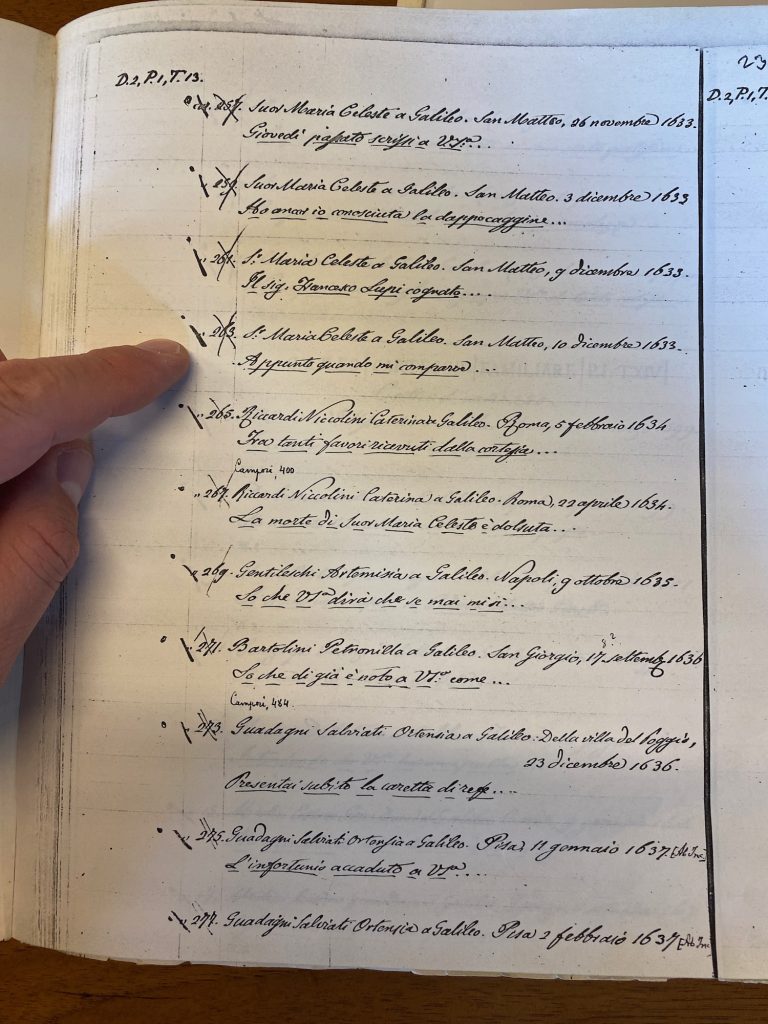 23
D.2, P.1, T. 13.
D.2, P.1, T.
car. 257. Suor Maria Celeste a Galileo. San Matteo, 26 novembre 1633.
Giovedì passato scrissi a V.S.ª...
„ 259. Suor Maria Celeste a Galileo. San Matteo. 3 dicembre 1633
Ho ancor io conosciuta la dappocaggine...
„ 261. S.ª Maria Celeste a Galileo. San Matteo, 9 dicembre 1633.
Il sig. Francesco Lupi cognato....
„ 263. S.ª Maria Celeste a Galileo. San Matteo, 10 dicembre 1633.
Appunto quando mi comparve...
„ 265. Riccardi Niccolini Caterina a Galileo. Roma, 5 febbraio 1634
Fra tanti favori ricevuti dalla cortesia...
Campori, 400
„ 267. Riccardi Niccolini Caterina a Galileo. Roma, 22 aprile 1634.
La morte di Suor Maria Celeste è dolsuta...
„ 269. Gentileschi Artemisia a Galileo. Napoli, 9 ottobre 1635.
So che VS.ª dirà che se mai mi si...
8?
„ 271. Bartolini Petronilla a Galileo. San Giorgio, 17 settemb. 1636
So che di già è noto a VS.ª come...
Campori, 484.
„ 273. Guadagni Salviati Ortensia a Galileo. Della villa del Poggio,
23 dicembre 1636.
Presentai subito la caretta di refe....
„ 275. Guadagni Salviati Ortensia a Galileo. Pisa, 11 gennaio 1637. [Ab Inc.]
L'infortunio accaduto a VS.ª...
„ 277. Guadagni Salviati Ortensia a Galileo. Pisa 2 febbraio 1637 [Ab Inc.]